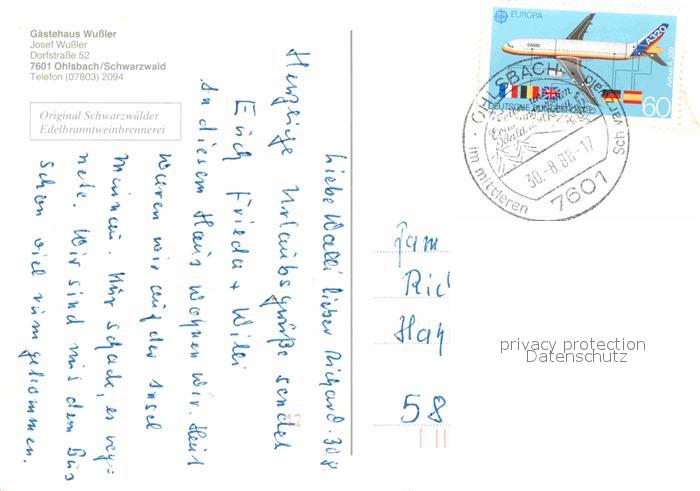 Gästehaus Wußler
Josef Wußler
Dorfstraße 52
7601 Ohlsbach/Schwarzwald
Telefon (07803) 2094
Original Schwarzwälder
Edelbranntweinbrennerei
Liebe Walli lieber Richard. 30.8
Herzliche Urlaubsgrüße sendet
Euch Frieda + Willi
In diesem Haus wohnen wir. Heut
waren wir auf der Insel
Mainau. Nur schade, es reg=
nete. Wir sind mit dem Bus
schon viel rumgekommen.
EUROPA
A320
Airbus A320
DEUTSCHE BUNDESPOST
60
OHLSBACH
im mittleren Schwarzwald
30.-8.88-17
7601
Fam
Ric
Hag
58
privacy protection
Datenschutz